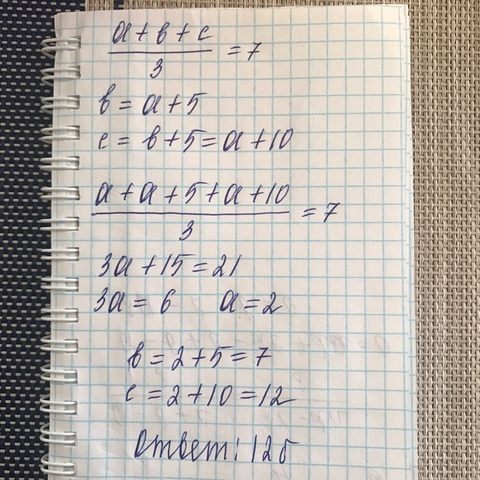 a + b + c / 3 = 7
b = a + 5
c = b + 5 = a + 10
a + a + 5 + a + 10 / 3 = 7
3a + 15 = 21
3a = 6 a = 2
b = 2 + 5 = 7
c = 2 + 10 = 12
Ответ: 12б